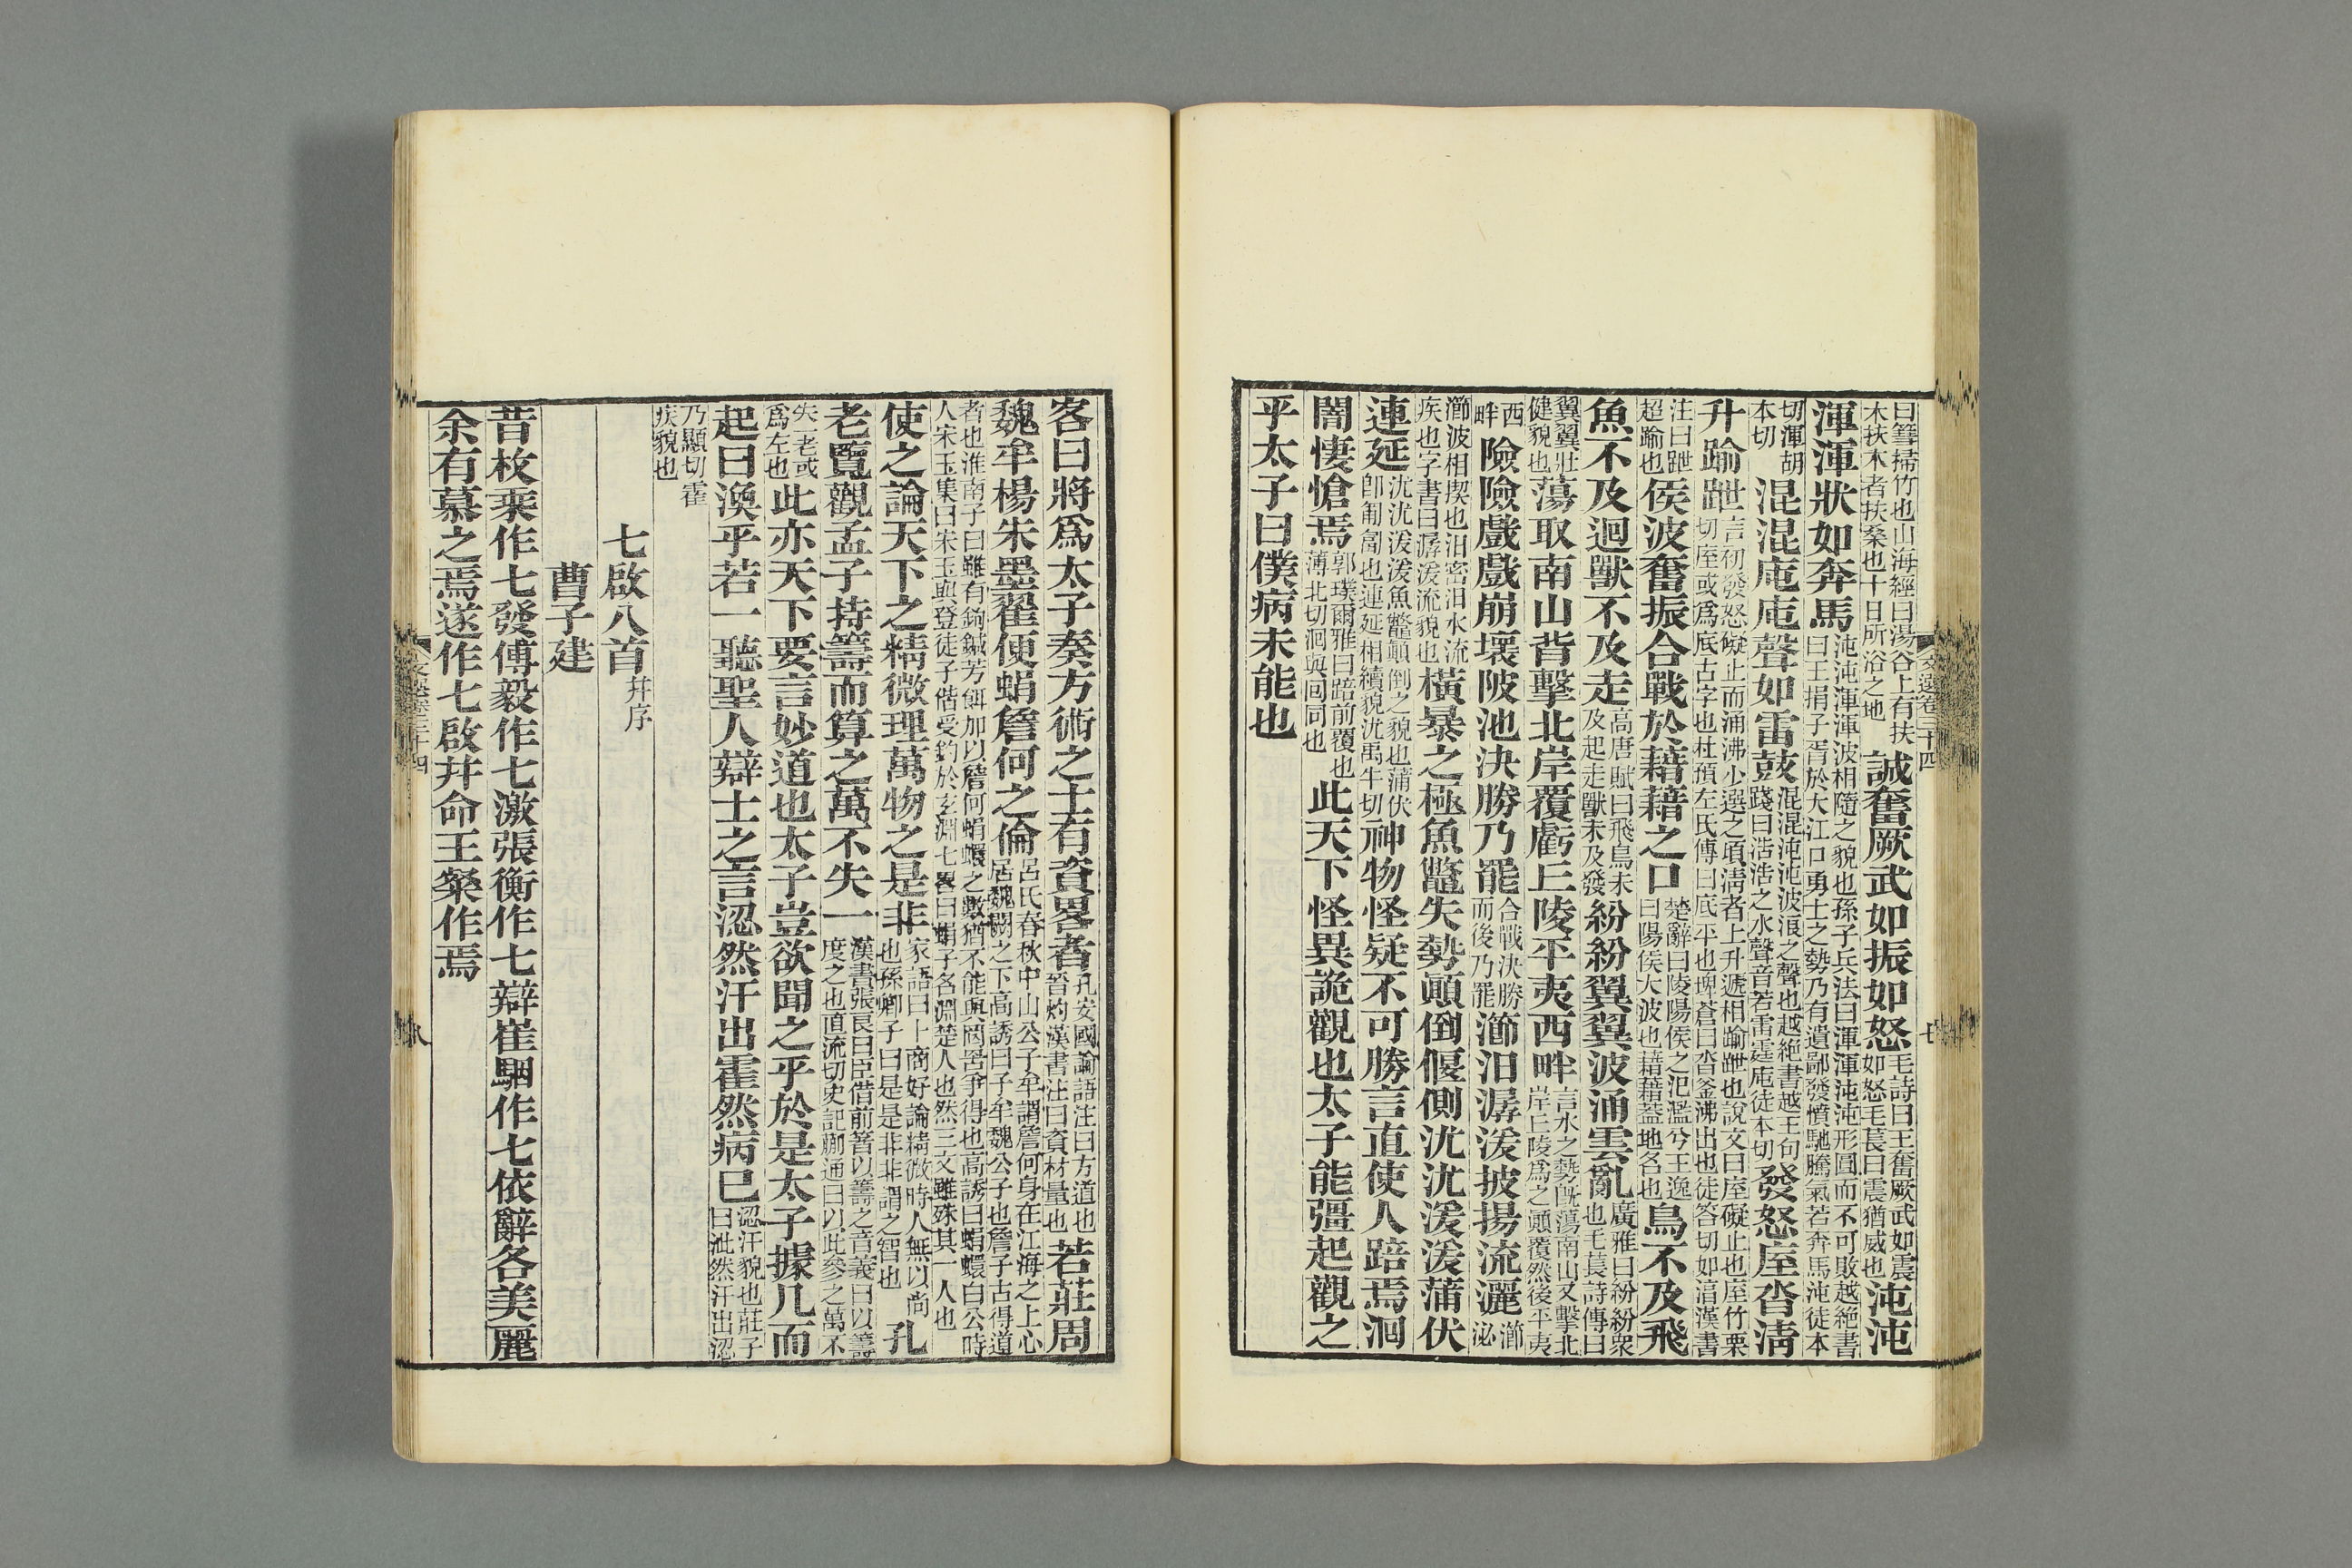 曰篲掃竹也山海經曰湯谷上有扶
木扶木者扶桑也十日所浴之地
誠奮厥武如振如怒
毛詩曰王奮厥武如震
如怒毛萇曰震猶威也
沌沌
渾渾狀如奔馬
沌沌渾渾波相隨之貌也孫子兵法曰渾渾沌沌形圓而不可敗越絶書
曰王捐子胥於大江口勇士之勢乃有遺鄙發憤馳騰氣若奔馬沌徒本
切渾胡
本切
混混庉庉聲如雷鼓
混混沌沌波浪之聲也越絶書越王句
踐曰浩浩之水聲音若雷霆庉徒本切
發怒庢沓淸
升踰跇
言初發怒礙止而涌沸少選之頃淸者上升遞相踰跇也說文曰庢礙止也庢竹栗
切庢或爲底古字也杜預左氏傳曰底平也埤蒼曰沓釜沸出也徒荅切如淳漢書
注曰跇
超踰也
侯波奮振合戰於藉藉之口
楚辭曰陵陽侯之氾濫兮王逸
曰陽侯大波也藉藉蓋地名也
鳥不及飛
魚不及迴獸不及走
高唐賦曰飛鳥未
及起走獸未及發
紛紛翼翼波涌雲亂
廣雅曰紛紛衆
也毛萇詩傳曰
翼翼壯
健貌也
蕩取南山背擊北岸覆虧丘陵平夷西畔
言水之勢旣蕩南山又擊北
岸丘陵爲之顚覆然後平夷
西
畔
險險戲戲崩壞陂池決勝乃罷
合戰決勝
而後乃罷
瀄汩潺湲披揚流灑
瀄
泌
瀄波相揳也汨密汩水流
疾也字書曰潺湲流貌也
橫暴之極魚鼈失勢顚倒偃側沋沋湲湲蒲伏
連延
沋沋湲湲魚鼈顚倒之貌也蒲伏
卽匍匐也連延相續貌沋禹牛切
神物怪疑不可勝言直使人踣焉洄
闇悽愴焉
郭璞爾雅曰踣前覆也
薄北切洄與回同也
此天下怪異詭觀也太子能彊起觀之
乎太子曰僕病未能也
文選卷三十四
七
客曰將爲太子奏方術之士有資畧者
孔安國論語注曰方道也
晉灼漢書注曰資材量也
若莊周
魏牟楊朱墨翟便蜎詹何之倫
呂氏春秋中山公子牟謂詹何身在江海之上心
居魏闕之下高誘曰子牟魏公子也詹子古得道
者也淮南子曰雖有鉤鍼芳餌加以詹何蜎蠉之數猶不能與罔罟爭得也高誘曰蜎蠉白公時
人宋玉集曰宋玉與登徒子偕受釣於玄淵七畧曰蜎子名淵楚人也然三文雖殊其一人也
使之論天下之精微理萬物之是非
家語曰卜商好論精微時人無以尚
也孫卿子曰是是非非謂之智也
孔
老覽觀孟子持籌而算之萬不失一
漢書張良曰臣借前箸以籌之音義曰以籌
度之也直流切史記蒯通曰以此參之萬不
失一老或
爲左也
此亦天下要言妙道也太子豈欲聞之乎於是太子據几而
起曰渙乎若一聽聖人辯士之言涊然汗出霍然病已
涊汗貌也莊子
曰泚然汗出涊
乃顯切霍
疾貌也
七啟八首幷序
曹子建
昔枚乘作七發傅毅作七激張衡作七辯崔駰作七依辭各美麗
余有慕之焉遂作七啟幷命王粲作焉
文選卷三十四
八